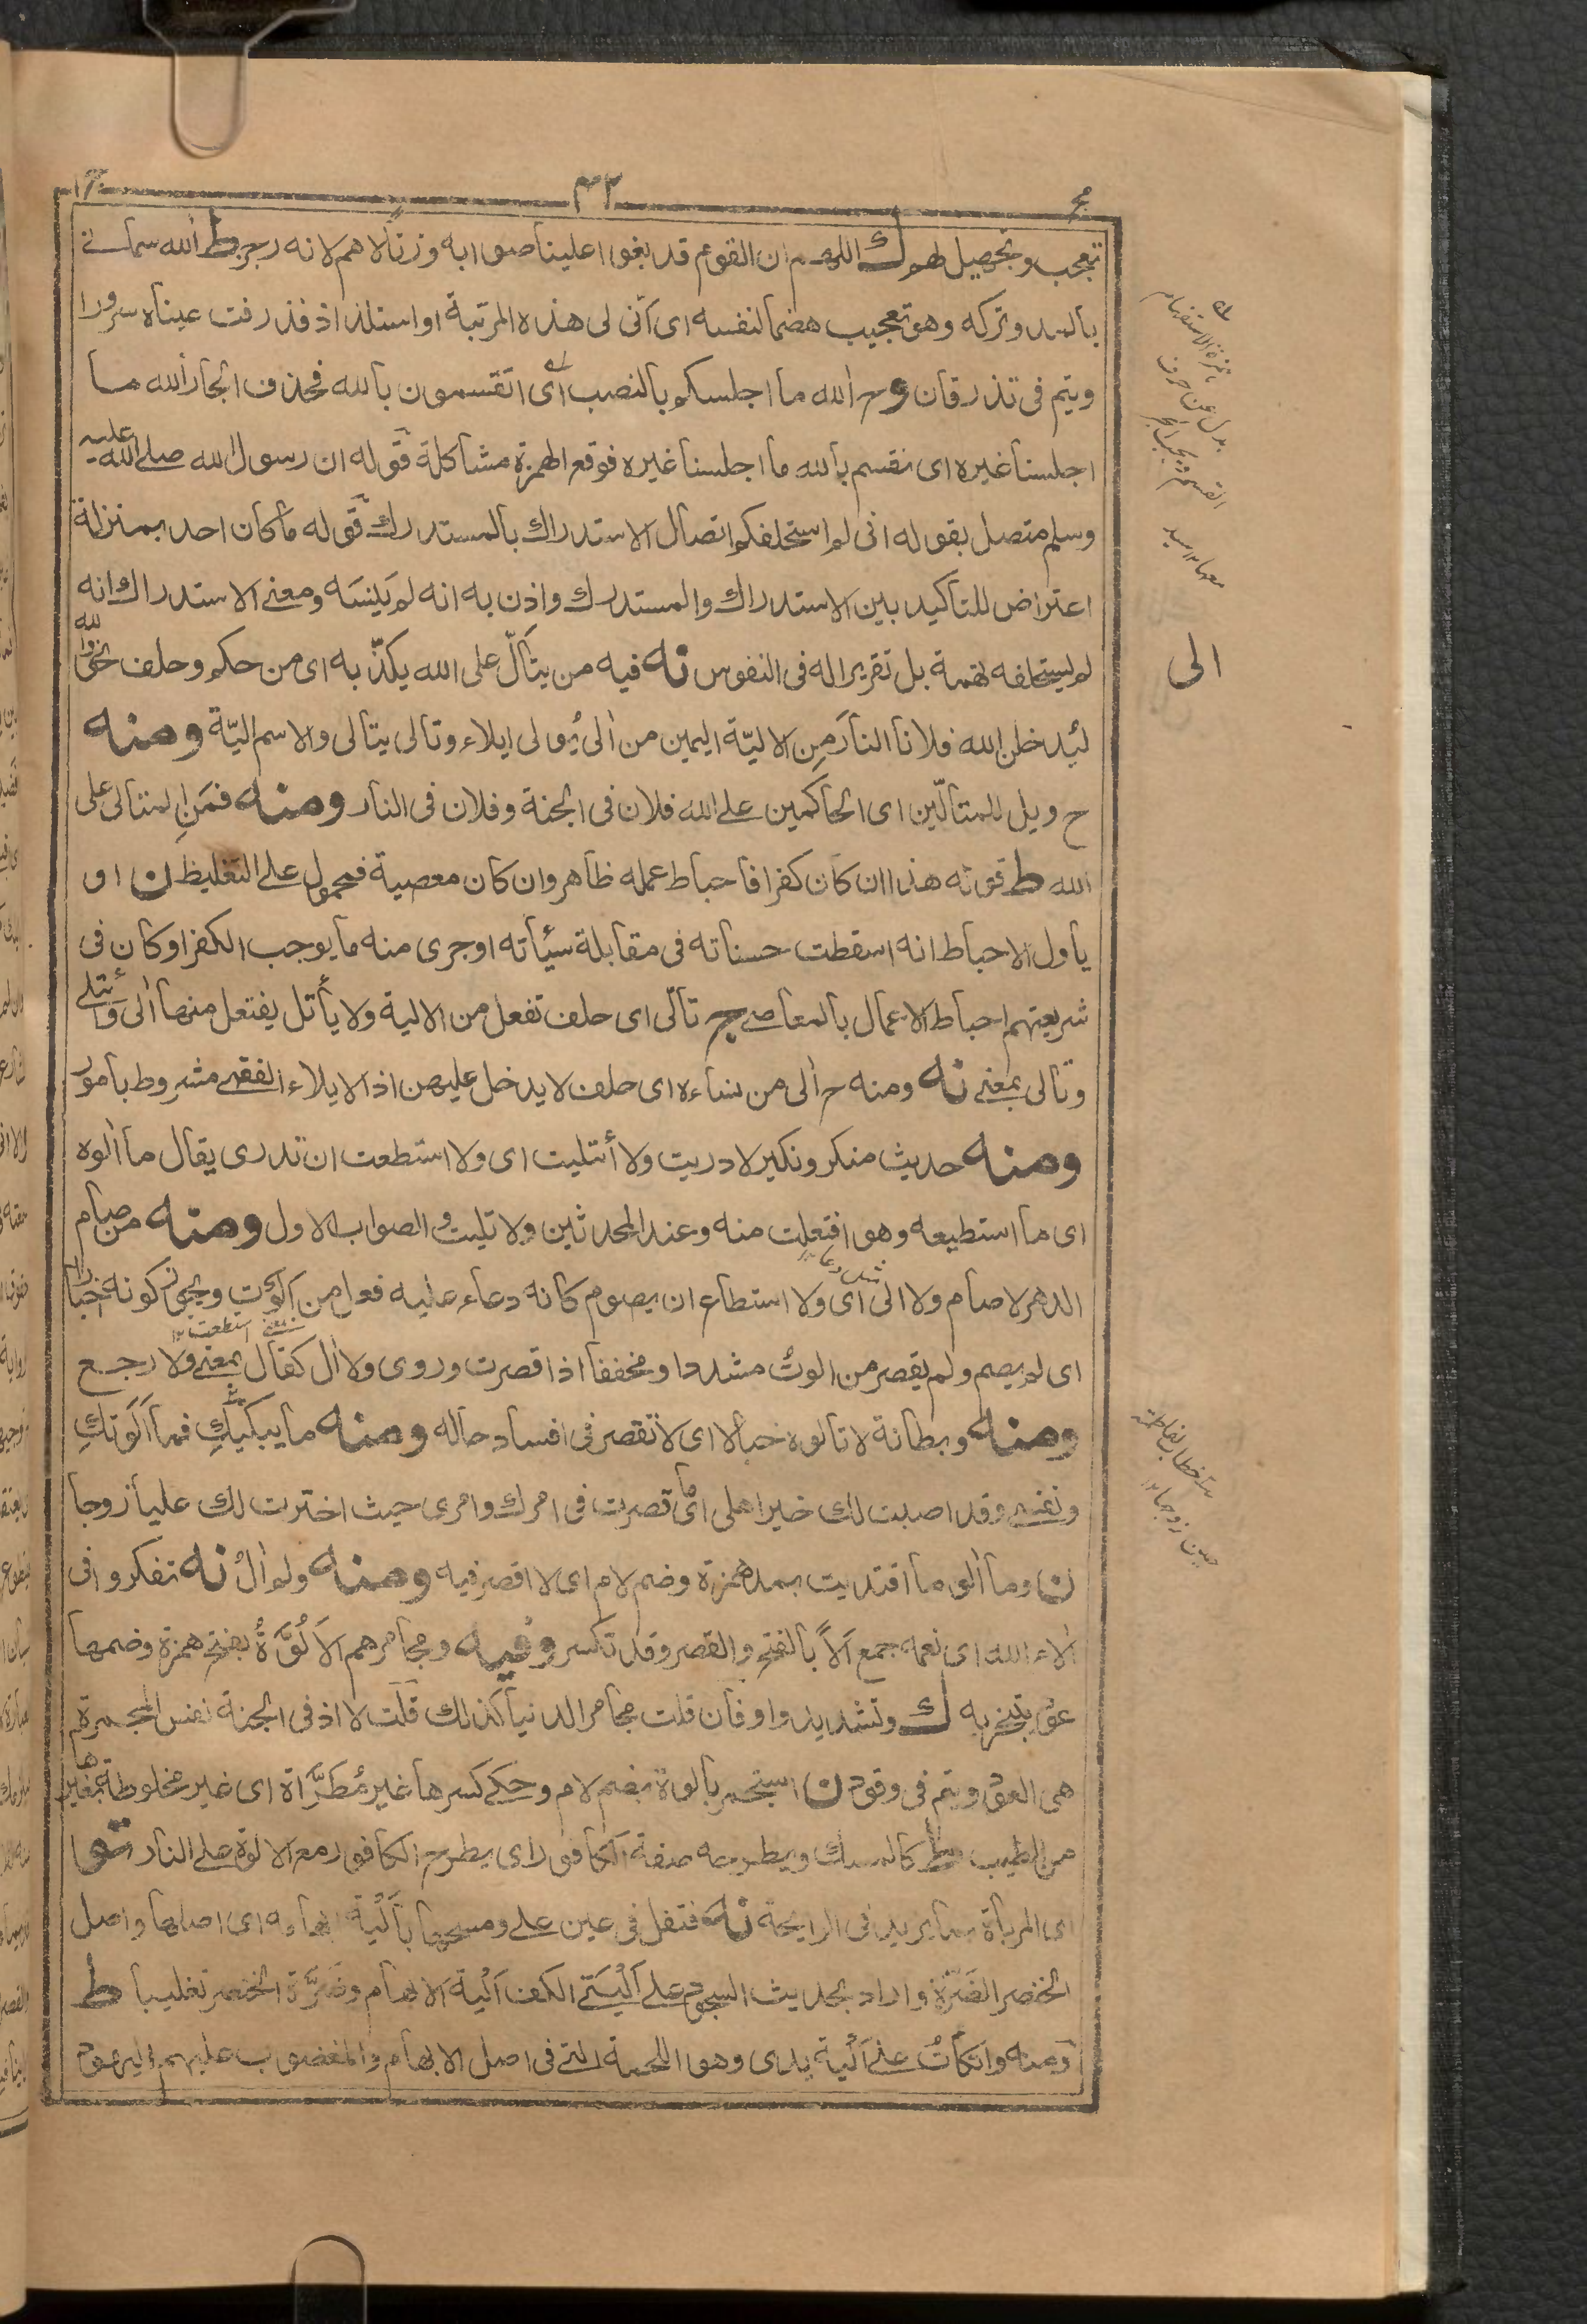 مج ٣٢ ا م
تعجب وتحصيل لهم ك اللهم ان القوم قد بغوا علينا صوابه وزنا لاهم لانه رجز ط الله سماني
بالمد وتركه وهو تعجيب هضما لنفسه اى انى لى هذه المرتبة او استلذاذ فذرفت عيناه سرورا
ويتم فى تذرقان وح الله ما اجلسكم بالنصب اى اتقسمون بالله فحذف الجار الله ما
اجلسنا غيره اى نقسم بالله ما اجلسنا غيره فوقع الهمزة مشاكلة قوله ان رسول الله صلى الله عليه
وسلم متصل بقوله انى لم استحلفكم اتصال الاستدراك بالمستدرك قوله ما كان احد بمنزلة
اعتراض للتاكيد بين الاستدراك والمستدرك واذن به انه لم ينسه ومعنى الاستدراك انه
لم يستحلفه لتهمة بل تقريرا له فى النفوس نه فيه من يتألّ على الله يكذّبه اى من حكم وحلف نحو والله
ليدخلن الله فلانا النار من الاليّة اليمين من آلى يُولى ايلاء وتالى يتألى والاسم اليّة ومنه
ح ويل للمتألّين اى الحاكمين على الله فلان فى الجنة وفلان فى النار ومنه فمن المتالى على
الله ط قوله هذا ان كان كفرا فاحباط عمله ظاهر وان كان معصية فمحمول على التغليظ ن او
يأول الاحباط انه اسقطت حسناته فى مقابلة سيئاته او جرى منه ما يوجب الكفر او كان فى
شريعتهم احباط الاعمال بالمعاصى ج تألّى اى حلف تفعل من الالية ولا يأتل يفتعل منها آلى وأتلى
وتالى بمعنى نه ومنه ح آلى من نساءه اى حلف لا يدخل عليهن اذ الايلاء الفقهى مشروط بامور
ومنه حديث منكر ونكير لا دريت ولا أئتليت اى ولا استطعت ان تدرى يقال ما آلوه
اى ما استطيعه وهو افتعلت منه وعند المحدثين ولا تليت والصواب الاول ومنه من صام
الدهر لا صام ولا الى اى ولا استطاع ان يصوم كانه دعاء عليه فعل من آلوت ويجوز كونه اخبارا
اى لم يصم ولم يقصر من الوتُ مشددا ومخففا اذا قصرت وروى ولا آل كقال بمعنى ولا رجع
ومنه وبطانة لا تالوه خبالا اى لا تقصر فى افساد حاله ومنه ما يبكيكِ فما آلوتكِ
ونفسى وقد اصبت لك خير اهلى اى ما قصرت فى امرك وامرى حيث اخترت لك عليا زوجا
ن وما آلو ما اقتديت بمد همزة وضم لام اى لا اقصر فيه ومنه ولم آلُ نه تفكروا فى
آلاء الله اى نعمه جمع ألاً بالفتح والقصر وقد تكسر وفيه ومجامرهم الاَلُوَّةُ بفتح همزة وضمها
عود يتبخر به ك وتشديد واو فان قلت مجامر الدنيا كذلك قلت لا اذ فى الجنة نفس المجمرة
هى العود ويتم فى وقود ن استجمر بالوة بضم لام وحكى كسرها غير مُطَرَّاة اى غير مخلوطة بغيرها
من الطيب ط كالمسك ويطرحه صفة الكافور اى يطرح الكافور مع الالوة على النار تو
اى المرباة بما يزيد فى الرايحة نه فتفل فى عين على ومسحها بألية ابهامه اى اصلها واصل
الخنصر الضرّة واراد بحديث السجود على أليتى الكف ألية الابهام وضَرَّة الخنصر تغليبا ط
ومنه واتكأتُ على ألية يدى وهو اللحمة التى فى اصل الابهام والمغضوب عليهم اليهود
همزة الاستفهام
بدل عن حرف
القسم ويجب الجر
معها ١٢ سيد
الى
خطاب لفاطمة
حين زوجها ١٢